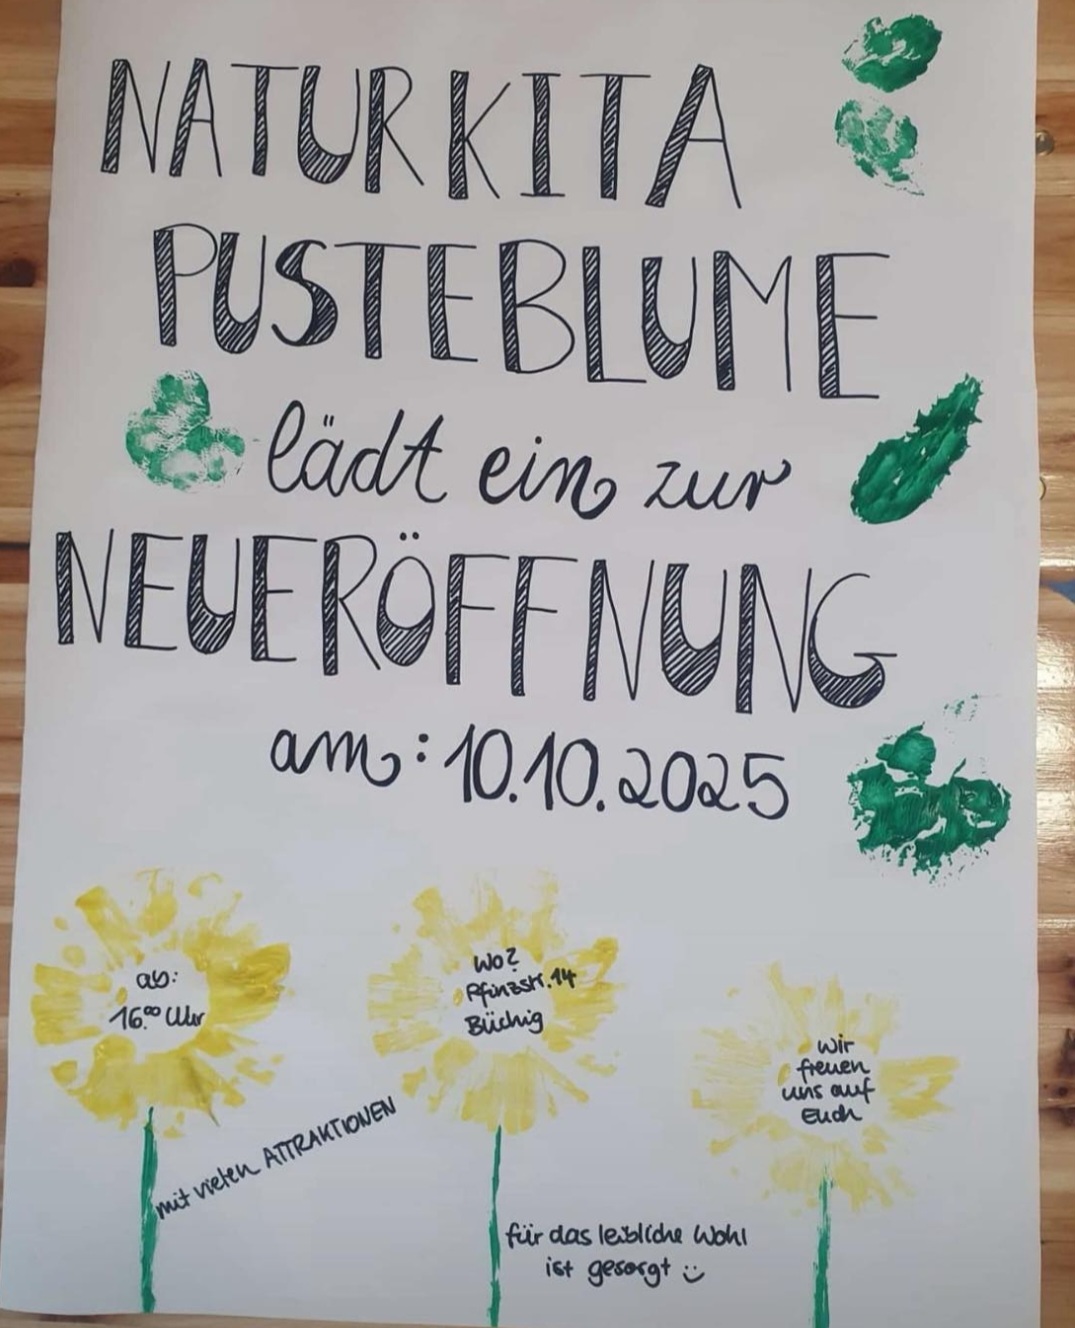 NATURKITA
PUSTEBLUME
lädt ein zur
NEUERÖFFNUNG
am: 10.10.2025
ab:
16.00 Uhr
Wo?
Pfinzstr. 14
Büchig
wir
freuen
uns auf
Euch
mit vielen ATTRAKTIONEN
für das leibliche Wohl
ist gesorgt :)